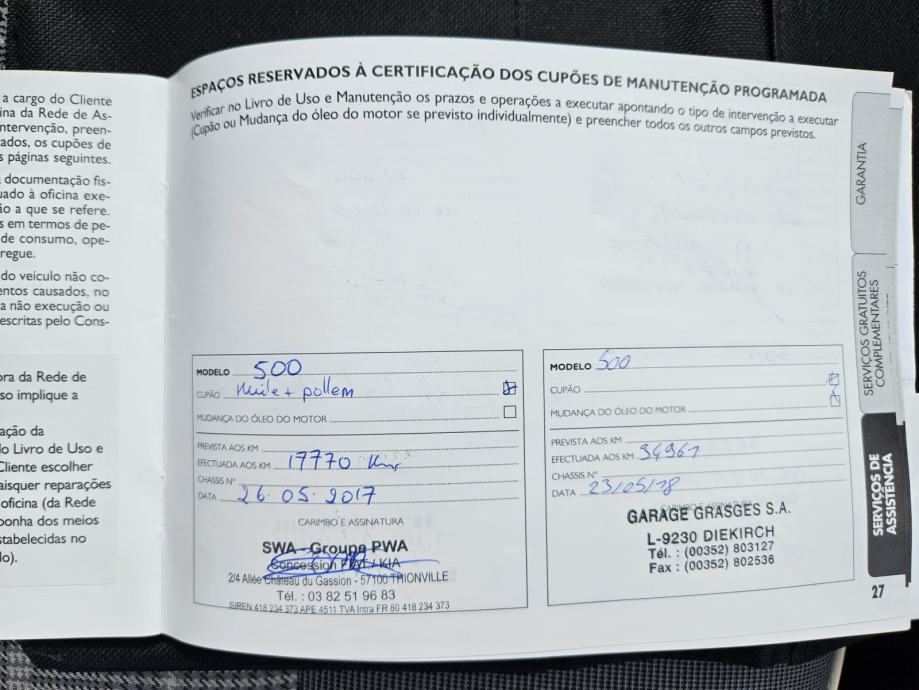 a cargo do Cliente
ina da Rede de As-
ntervenção, preen-
ados, os cupões de
s páginas seguintes.
documentação fis-
uado à oficina exe-
ão a que se refere.
s em termos de pe-
de consumo, ope-
regue.
do veículo não co-
entos causados, no
a não execução ou
escritas pelo Cons-
ora da Rede de
so implique a
ação da
lo Livro de Uso e
Cliente escolher
aisquer reparações
oficina (da Rede
ponha dos meios
stabelecidas no
lo).
ESPAÇOS RESERVADOS À CERTIFICAÇÃO DOS CUPÕES DE MANUTENÇÃO PROGRAMADA
Verificar no Livro de Uso e Manutenção os prazos e operações a executar apontando o tipo de intervenção a executar
(Cupão ou Mudança do óleo do motor se previsto individualmente) e preencher todos os outros campos previstos.
MODELO 500
CUPÃO Huile + pollem
MUDANÇA DO ÓLEO DO MOTOR
PREVISTA AOS KM
EFECTUADA AOS KM 17770 Km
CHASSIS N°
DATA 26.05.2017
CARIMBO E ASSINATURA
SWA - Groupe PWA
Concession FIAT / KIA
2/4 Allée Château du Gassion - 57100 THIONVILLE
Tél. : 03 82 51 96 83
SIREN 418 234 373 APE 4511 TVA Intra FR 80 418 234 373
MODELO 500
CUPÃO
MUDANÇA DO ÓLEO DO MOTOR
PREVISTA AOS KM
EFECTUADA AOS KM 34961
CHASSIS N°
DATA 23/05/18
CARIMBO E ASSINATURA
GARAGE GRASGES S.A.
L-9230 DIEKIRCH
Tél. : (00352) 803127
Fax : (00352) 802536
GARANTIA
SERVIÇOS GRATUITOS
COMPLEMENTARES
SERVIÇOS DE
ASSISTÊNCIA
27